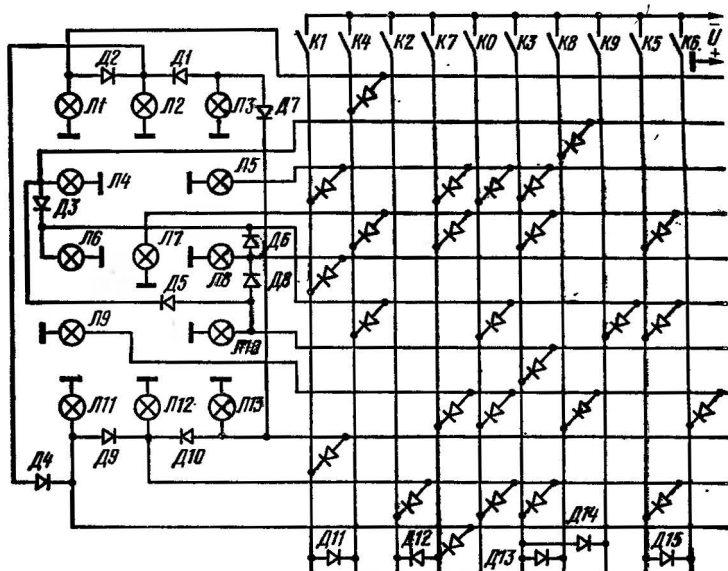 К1 К4 К2 К7 К0 К3 К8 К9 К5 К6 U
− +
Д2 Д1
Л1 Л2 Л3 Д7
Л4 Л5
Д3
Л6 Л7 Л8 Д6
Д5 Д8
Л9 Л10
Л11 Л12 Л13
Д4 Д9 Д10
Д14
Д11 Д12 Д13 Д15